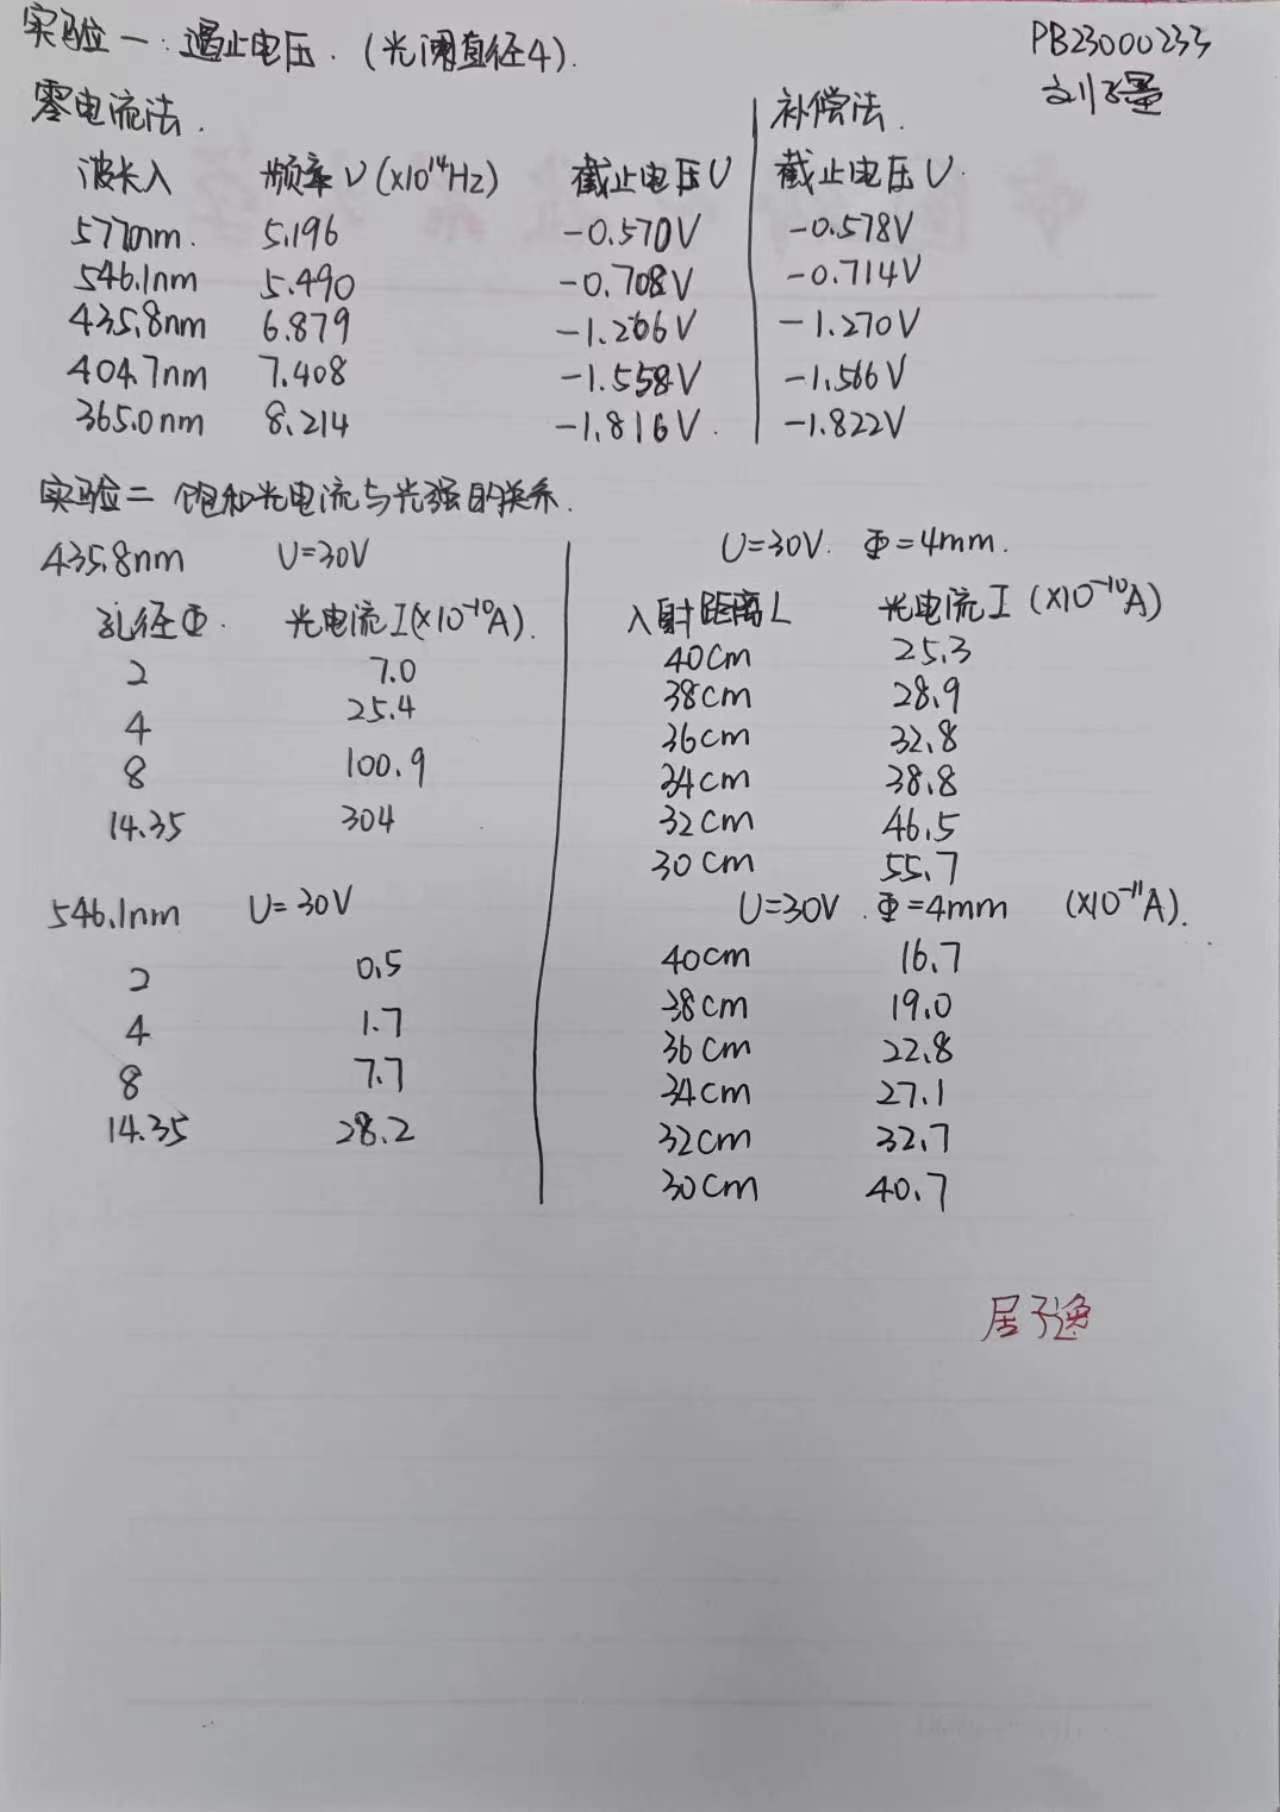 实验一: 遏止电压. (光阑直径4).
PB23000233
零电流法.
补偿法.
波长λ 频率ν(×10¹⁴Hz) 截止电压U 截止电压U.
577.0nm. 5.196 -0.570V -0.578V
546.1nm 5.490 -0.708V -0.714V
435.8nm 6.879 -1.266V -1.270V
404.7nm 7.408 -1.558V -1.566V
365.0nm 8.214 -1.816V. -1.822V
实验二 饱和光电流与光强的关系.
435.8nm U=30V
孔径Φ. 光电流I(×10⁻¹⁰A).
2 7.0
4 25.4
8 100.9
14.35 304
546.1nm U=30V
2 0.5
4 1.7
8 7.7
14.35 28.2
U=30V. Φ=4mm.
入射距离L 光电流I (×10⁻¹⁰A)
40cm 25.3
38cm 28.9
36cm 32.8
34cm 38.8
32cm 46.5
30cm 55.7
U=30V. Φ=4mm (×10⁻¹¹A).
40cm 16.7
38cm 19.0
36cm 22.8
34cm 27.1
32cm 32.7
30cm 40.7
居子逸